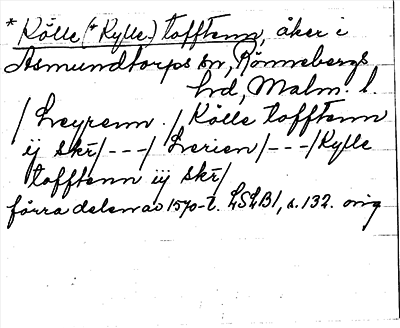 * Kölle (* Kylle-) tofftenn, åker i
Asmundtorps sn, Rönnebergs
hd, Malm. l.
/ Leyrenn. / Kölle tofftenn
ij skr/---/ Lerien/---/Kylle
tofftenn iij skr/
förra delen av 1570-t. LSLB1, s. 132. orig